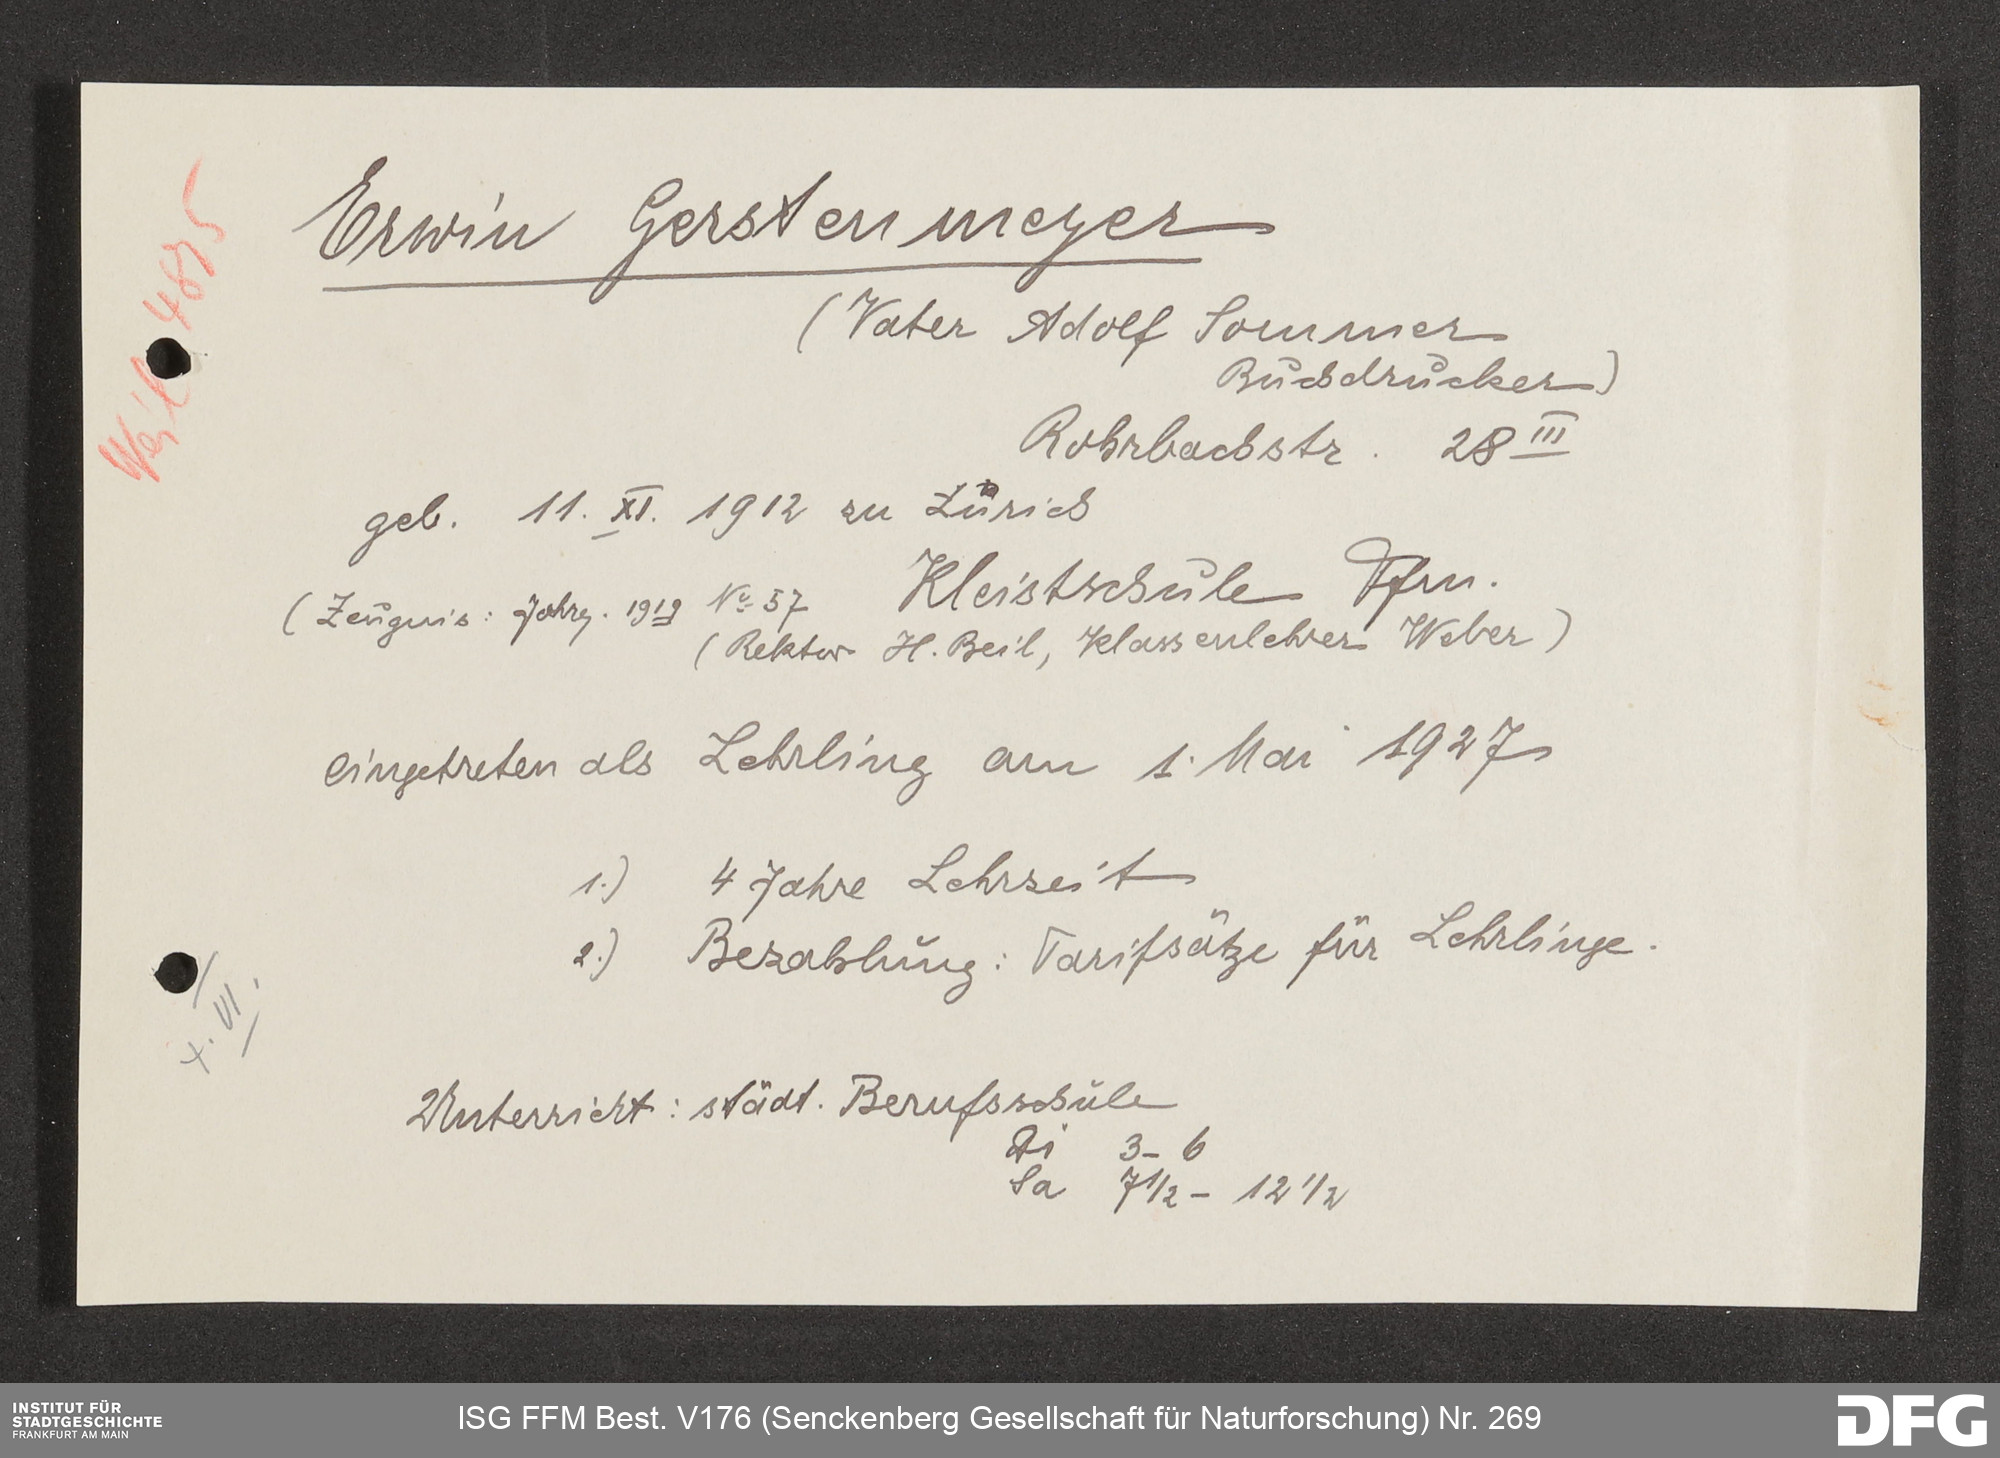 Erwin Gerstenmeyer
(Vater Adolf Sommer
Buchdrucker)
Rohrbachstr. 28 III
geb. 11. XI. 1912 zu Zürich
Kleistschule Ffm.
(Zeugnis: Jahrg. 1919 No 57
(Rektor H. Beil, Klassenlehrer Weber)
eingetreten als Lehrling am 1. Mai 1927
1.) 4 Jahre Lehrzeit
2.) Bezahlung: Tarifsätze für Lehrlinge.
Unterricht: städt. Berufsschule
Di 3-6
Sa 7 1/2 - 12 1/2
Weil
X. VI.
INSTITUT FÜR
STADTGESCHICHTE
FRANKFURT AM MAIN
ISG FFM Best. V176 (Senckenberg Gesellschaft für Naturforschung) Nr. 269
DFG